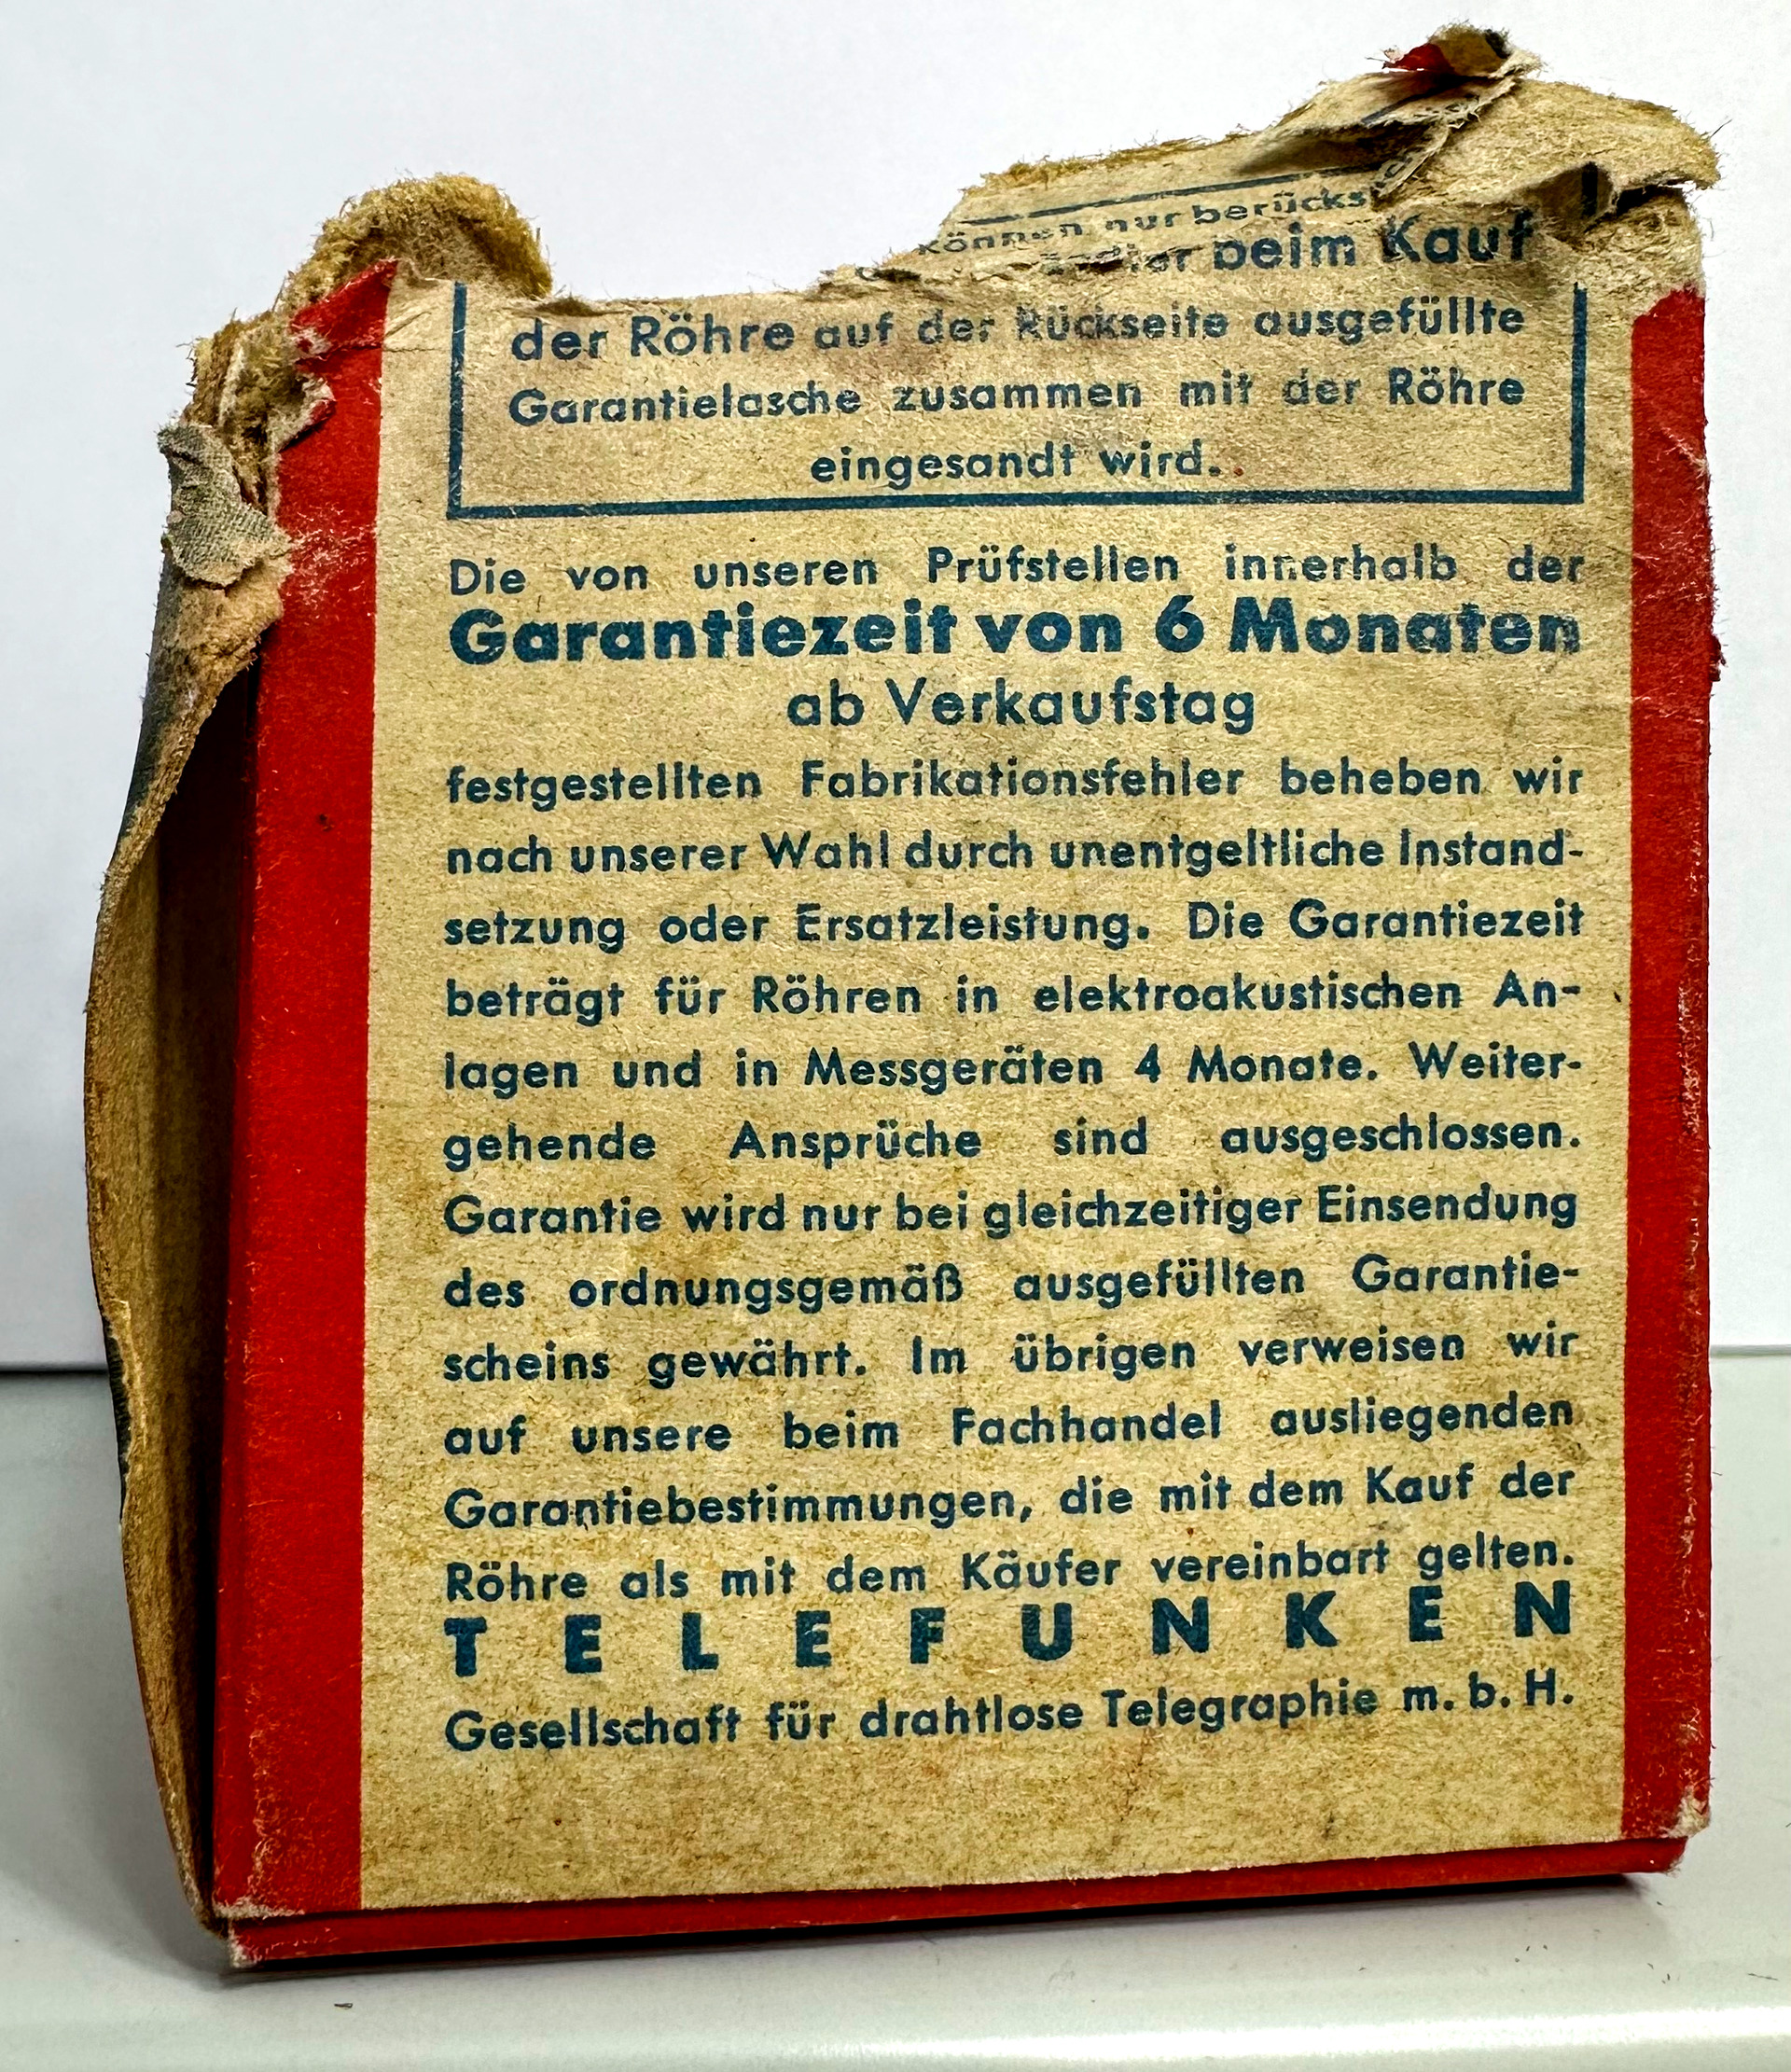 können nur berücks
beim Kauf
der Röhre auf der Rückseite ausgefüllte
Garantielasche zusammen mit der Röhre
eingesandt wird.
Die von unseren Prüfstellen innerhalb der
Garantiezeit von 6 Monaten
ab Verkaufstag
festgestellten Fabrikationsfehler beheben wir
nach unserer Wahl durch unentgeltliche Instand-
setzung oder Ersatzleistung. Die Garantiezeit
beträgt für Röhren in elektroakustischen An-
lagen und in Messgeräten 4 Monate. Weiter-
gehende Ansprüche sind ausgeschlossen.
Garantie wird nur bei gleichzeitiger Einsendung
des ordnungsgemäß ausgefüllten Garantie-
scheins gewährt. Im übrigen verweisen wir
auf unsere beim Fachhandel ausliegenden
Garantiebestimmungen, die mit dem Kauf der
Röhre als mit dem Käufer vereinbart gelten.
TELEFUNKEN
Gesellschaft für drahtlose Telegraphie m. b. H.